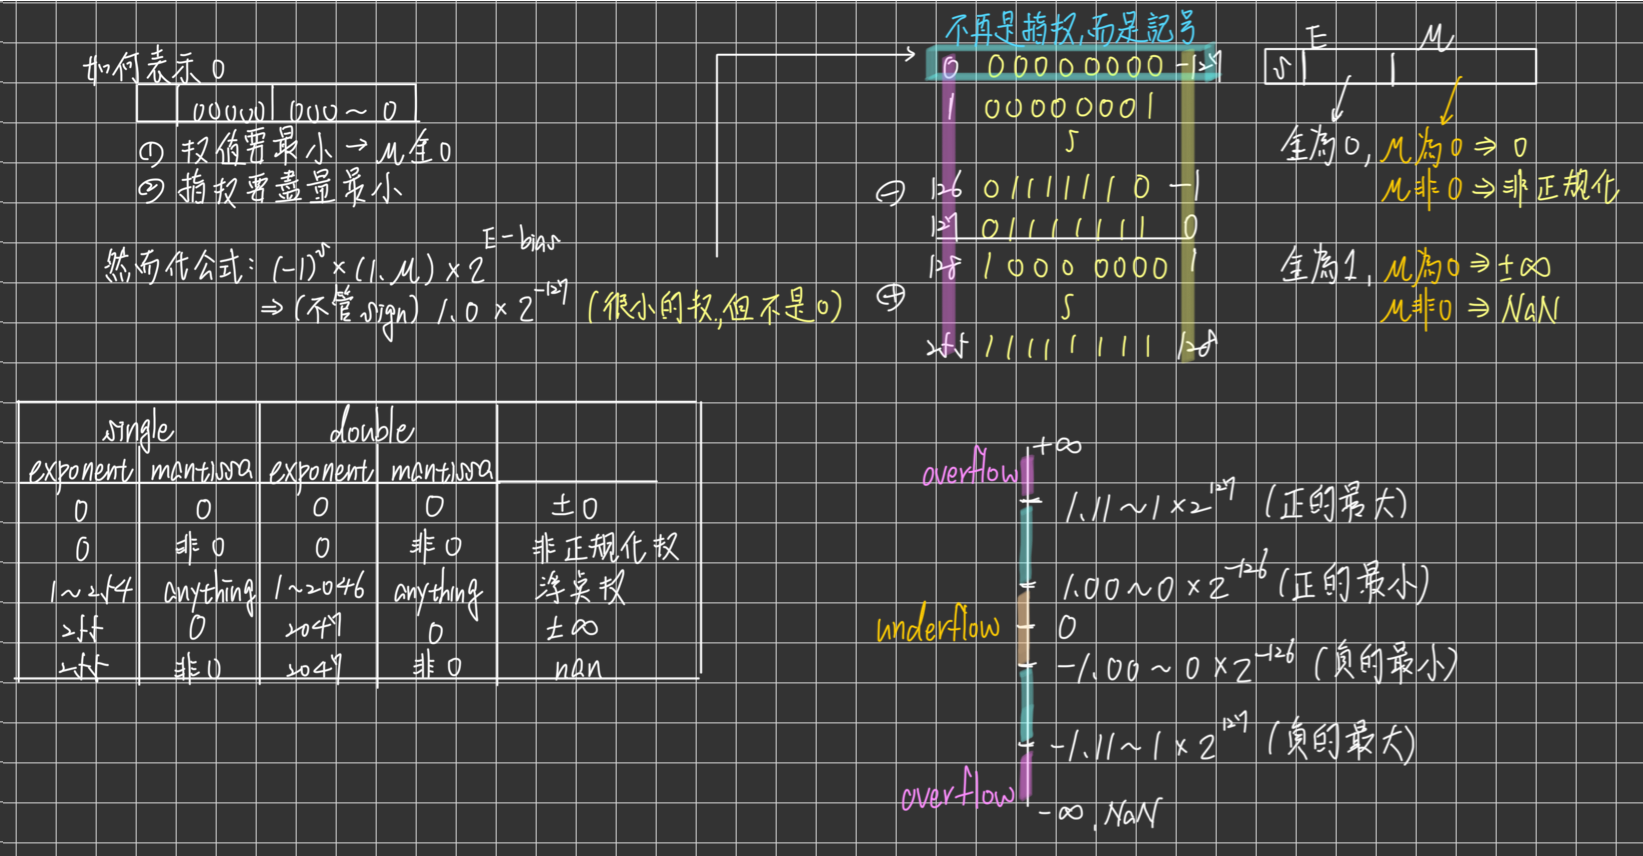 如何表示 0
00000 000～0
① 权值要最小→M全0
② 指权要盡量最小
然而代公式: (-1)^s × (1.M) × 2^E-bias
⇒ (不管sign) 1.0 × 2^-127 (很小的权,但不是0)
不再是指权,而是記号
0 00000000 -127
1 00000001
126 01111110 -1
127 01111111 0
128 10000000 1
255 11111111 128
⊖
⊕
E M
S
全為0, M為0 ⇒ 0
M非0 ⇒ 非正規化
全為1, M為0 ⇒ ±∞
M非0 ⇒ NaN
single double
exponent mantissa exponent mantissa
0 0 0 0 ±0
0 非0 0 非0 非正規化权
1～254 anything 1～2046 anything 浮桌权
255 0 2047 0 ±∞
255 非0 2047 非0 nan
+∞
overflow
1.11～1 × 2^127 (正的最大)
1.00～0 × 2^-126 (正的最小)
underflow 0
-1.00～0 × 2^-126 (負的最小)
-1.11～1 × 2^127 (負的最大)
overflow
-∞, NaN